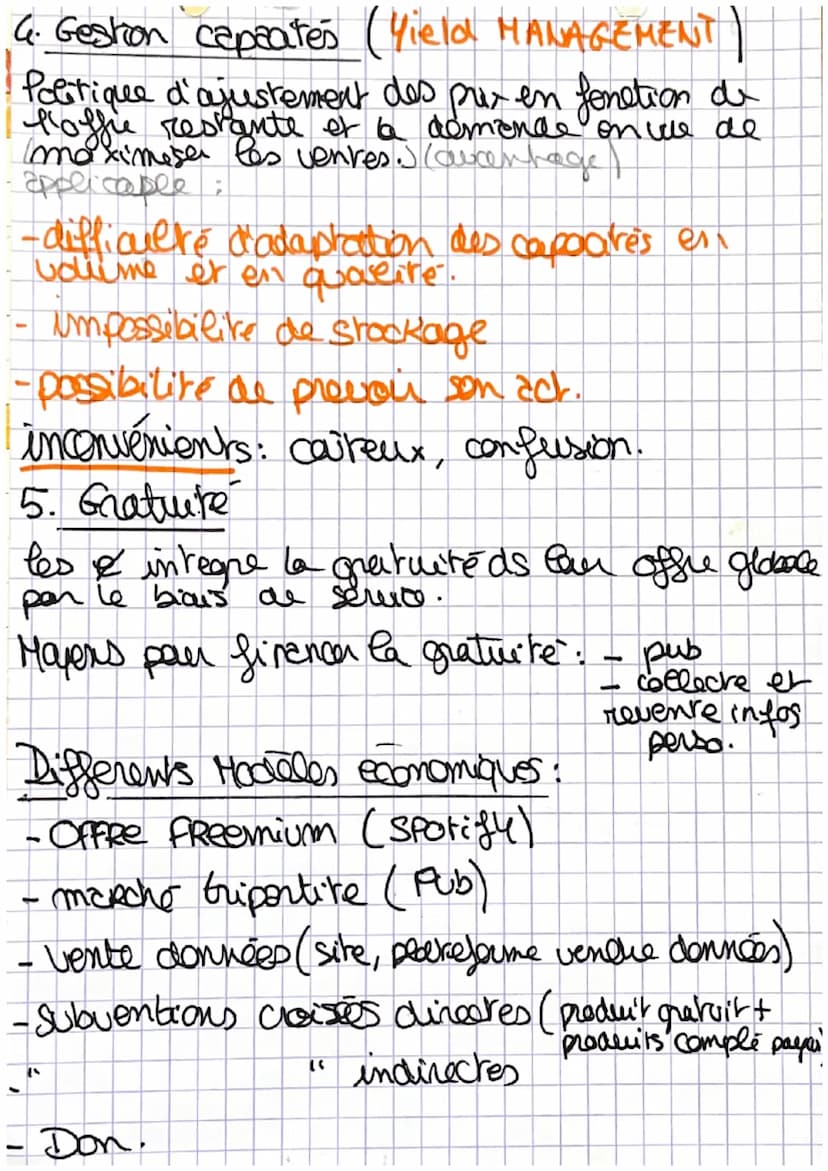 4. Gestion capacités (Yield MANAGEMENT)
Politique d'ajustement des prix en fonction de
l'offre restante et la demande en vue de
(maximiser les ventes.) (avantage)
applicable :
- difficulté d'adaptation des capacités en
volume et en qualité.
- impossibilité de stockage
- possibilité de prevoir son act.
inconvénients: coûteux, confusion.
5. Gratuité
les € integre la gratuité ds leur offre globale
par le biais de service.
Moyens pour financer la gratuité : - pub
- collecte et
revente infos
perso.
Differents Modèles économiques :
- OFFRE FReemium (SPotify)
- marché tripartite (Pub)
- Vente données (site, plateforme vendre données)
- Subventions croisés directes (produit gratuit +
produits complé payan
- " " indirectes
- Don.